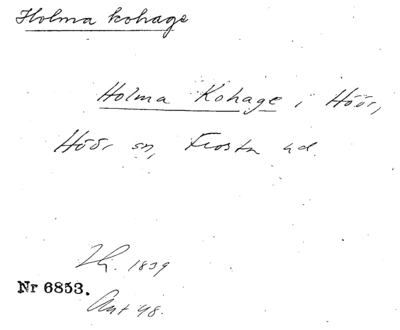 Holma kohage
Holma Kohage i Höör,
Höör sn, Frosta hd.
1839
Nr 6853.
Ant 48.